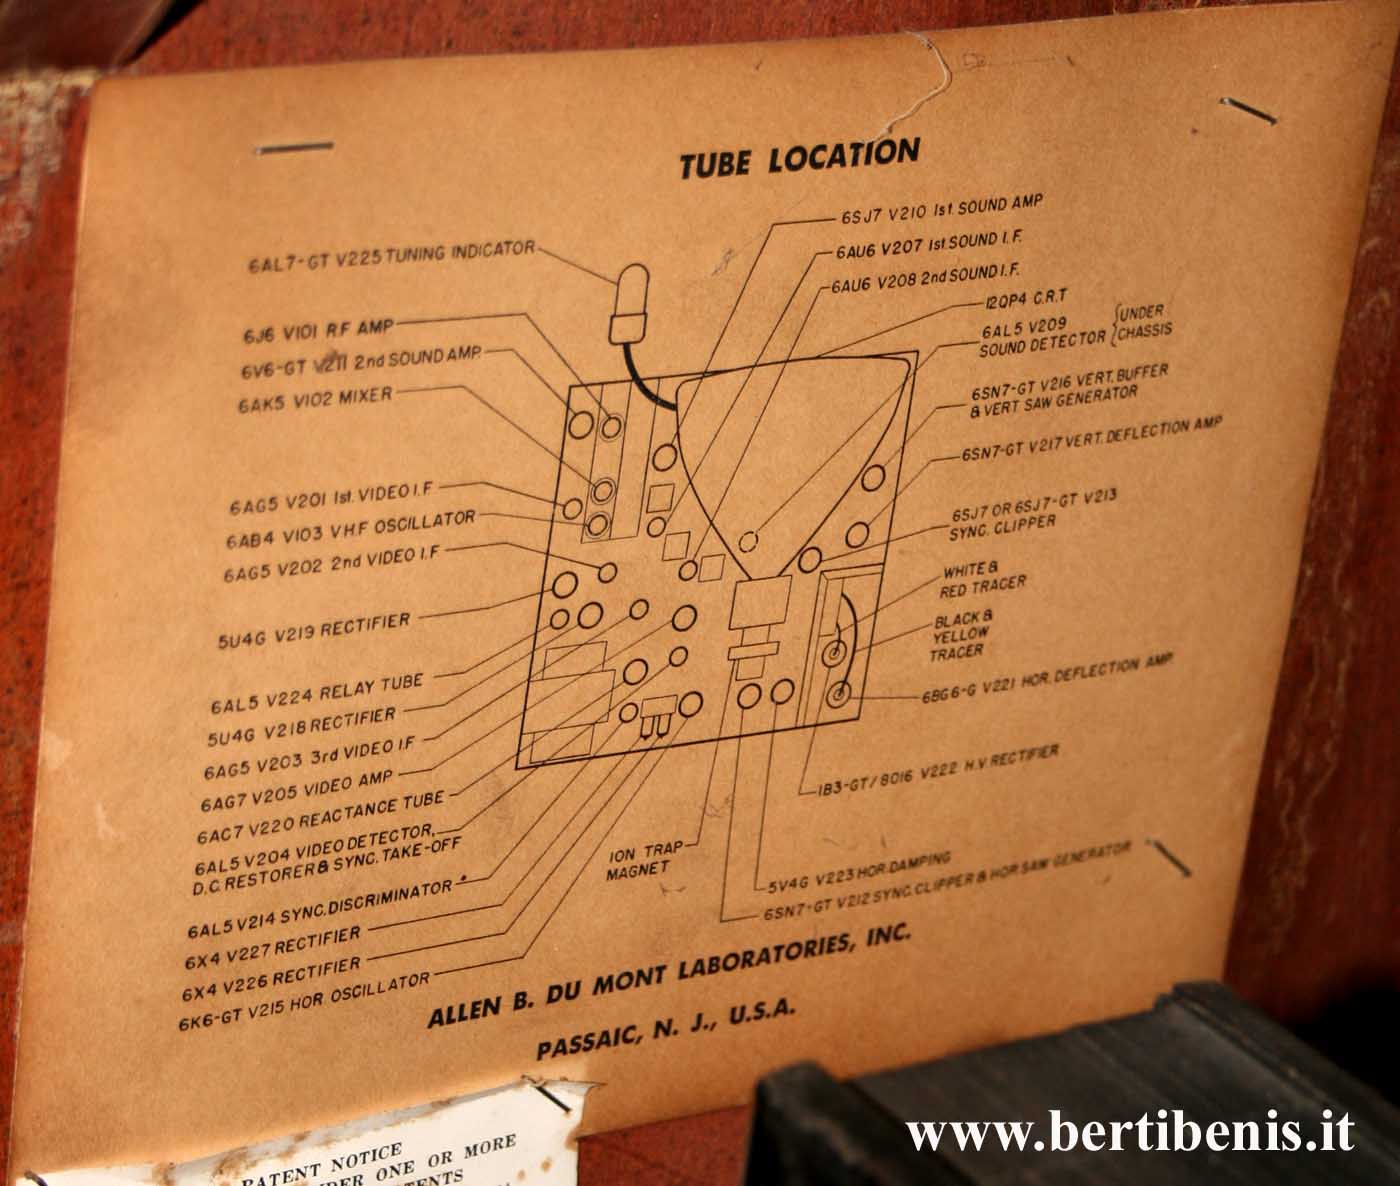 TUBE LOCATION
6AL7-GT V225 TUNING INDICATOR
6J6 V101 R.F AMP
6V6-GT V211 2nd SOUND AMP.
6AK5 V102 MIXER
6AG5 V201 1st. VIDEO I.F
6AB4 V103 V.H.F OSCILLATOR
6AG5 V202 2nd VIDEO I.F
5U4G V219 RECTIFIER
6AL5 V224 RELAY TUBE
5U4G V218 RECTIFIER
6AG5 V203 3rd VIDEO I.F
6AG7 V205 VIDEO AMP
6AC7 V220 REACTANCE TUBE
6AL5 V204 VIDEO DETECTOR,
D.C. RESTORER & SYNC. TAKE-OFF
6AL5 V214 SYNC. DISCRIMINATOR
6X4 V227 RECTIFIER
6X4 V226 RECTIFIER
6K6-GT V215 HOR. OSCILLATOR
6SJ7 V210 1st. SOUND AMP
6AU6 V207 1st. SOUND I.F.
6AU6 V208 2nd SOUND I.F.
12QP4 C.R.T
6AL5 V209
SOUND DETECTOR
UNDER
CHASSIS
6SN7-GT V216 VERT. BUFFER
& VERT SAW GENERATOR
6SN7-GT V217 VERT. DEFLECTION AMP
6SJ7 OR 6SJ7-GT V213
SYNC. CLIPPER
WHITE &
RED TRACER
BLACK &
YELLOW
TRACER
6BG6-G V221 HOR. DEFLECTION AMP.
1B3-GT/8016 V222 H.V RECTIFIER
ION TRAP
MAGNET
5V4G V223 HOR. DAMPING
6SN7-GT V212 SYNC. CLIPPER & HOR. SAW GENERATOR
ALLEN B. DU MONT LABORATORIES, INC.
PASSAIC, N. J., U.S.A.
PATENT NOTICE
ONE OR MORE
www.bertibenis.it